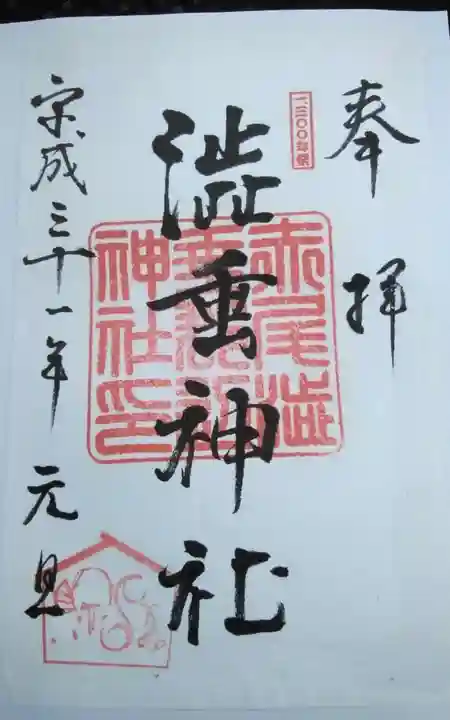 奉拝
一三〇〇年祭
澁垂神社
赤尾澁
神社印
平成三十一年 元旦